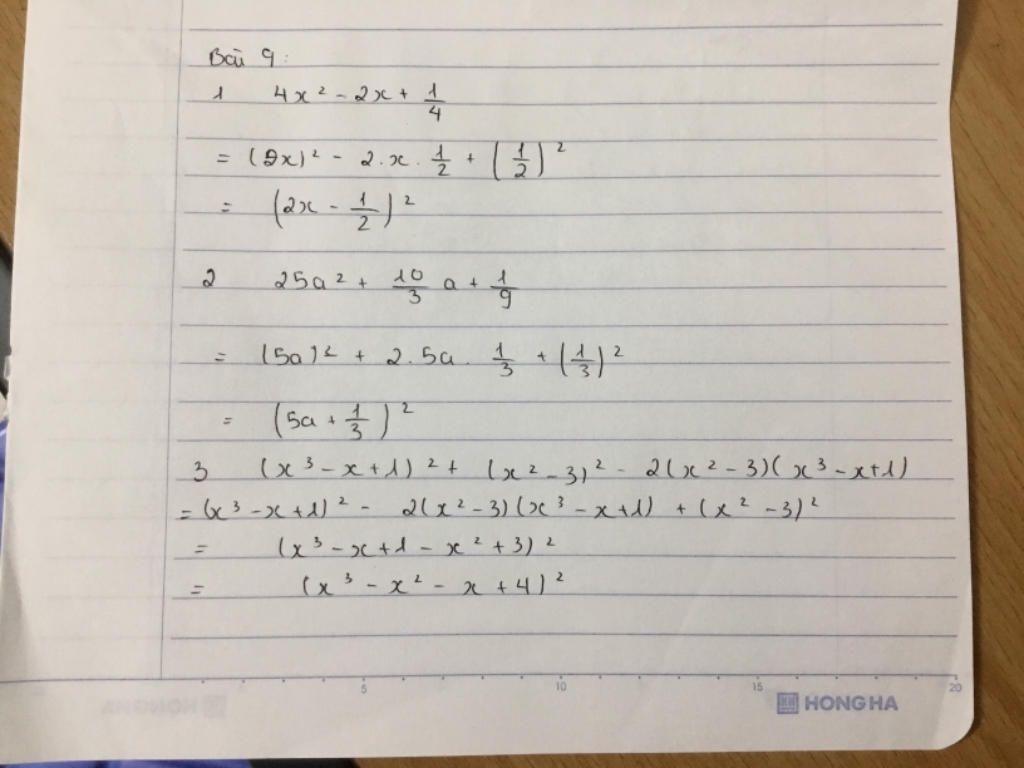 Bài 9:
1 4x² - 2x + 1/4
= (2x)² - 2.x.1/2 + (1/2)²
= (2x - 1/2)²
2 25a² + 10/3 a + 1/9
= (5a)² + 2.5a.1/3 + (1/3)²
= (5a + 1/3)²
3 (x³ - x + 1)² + (x² - 3)² - 2(x² - 3)(x³ - x + 1)
= (x³ - x + 1)² - 2(x² - 3)(x³ - x + 1) + (x² - 3)²
= (x³ - x + 1 - x² + 3)²
= (x³ - x² - x + 4)²
5 10 15 20
HONG HA